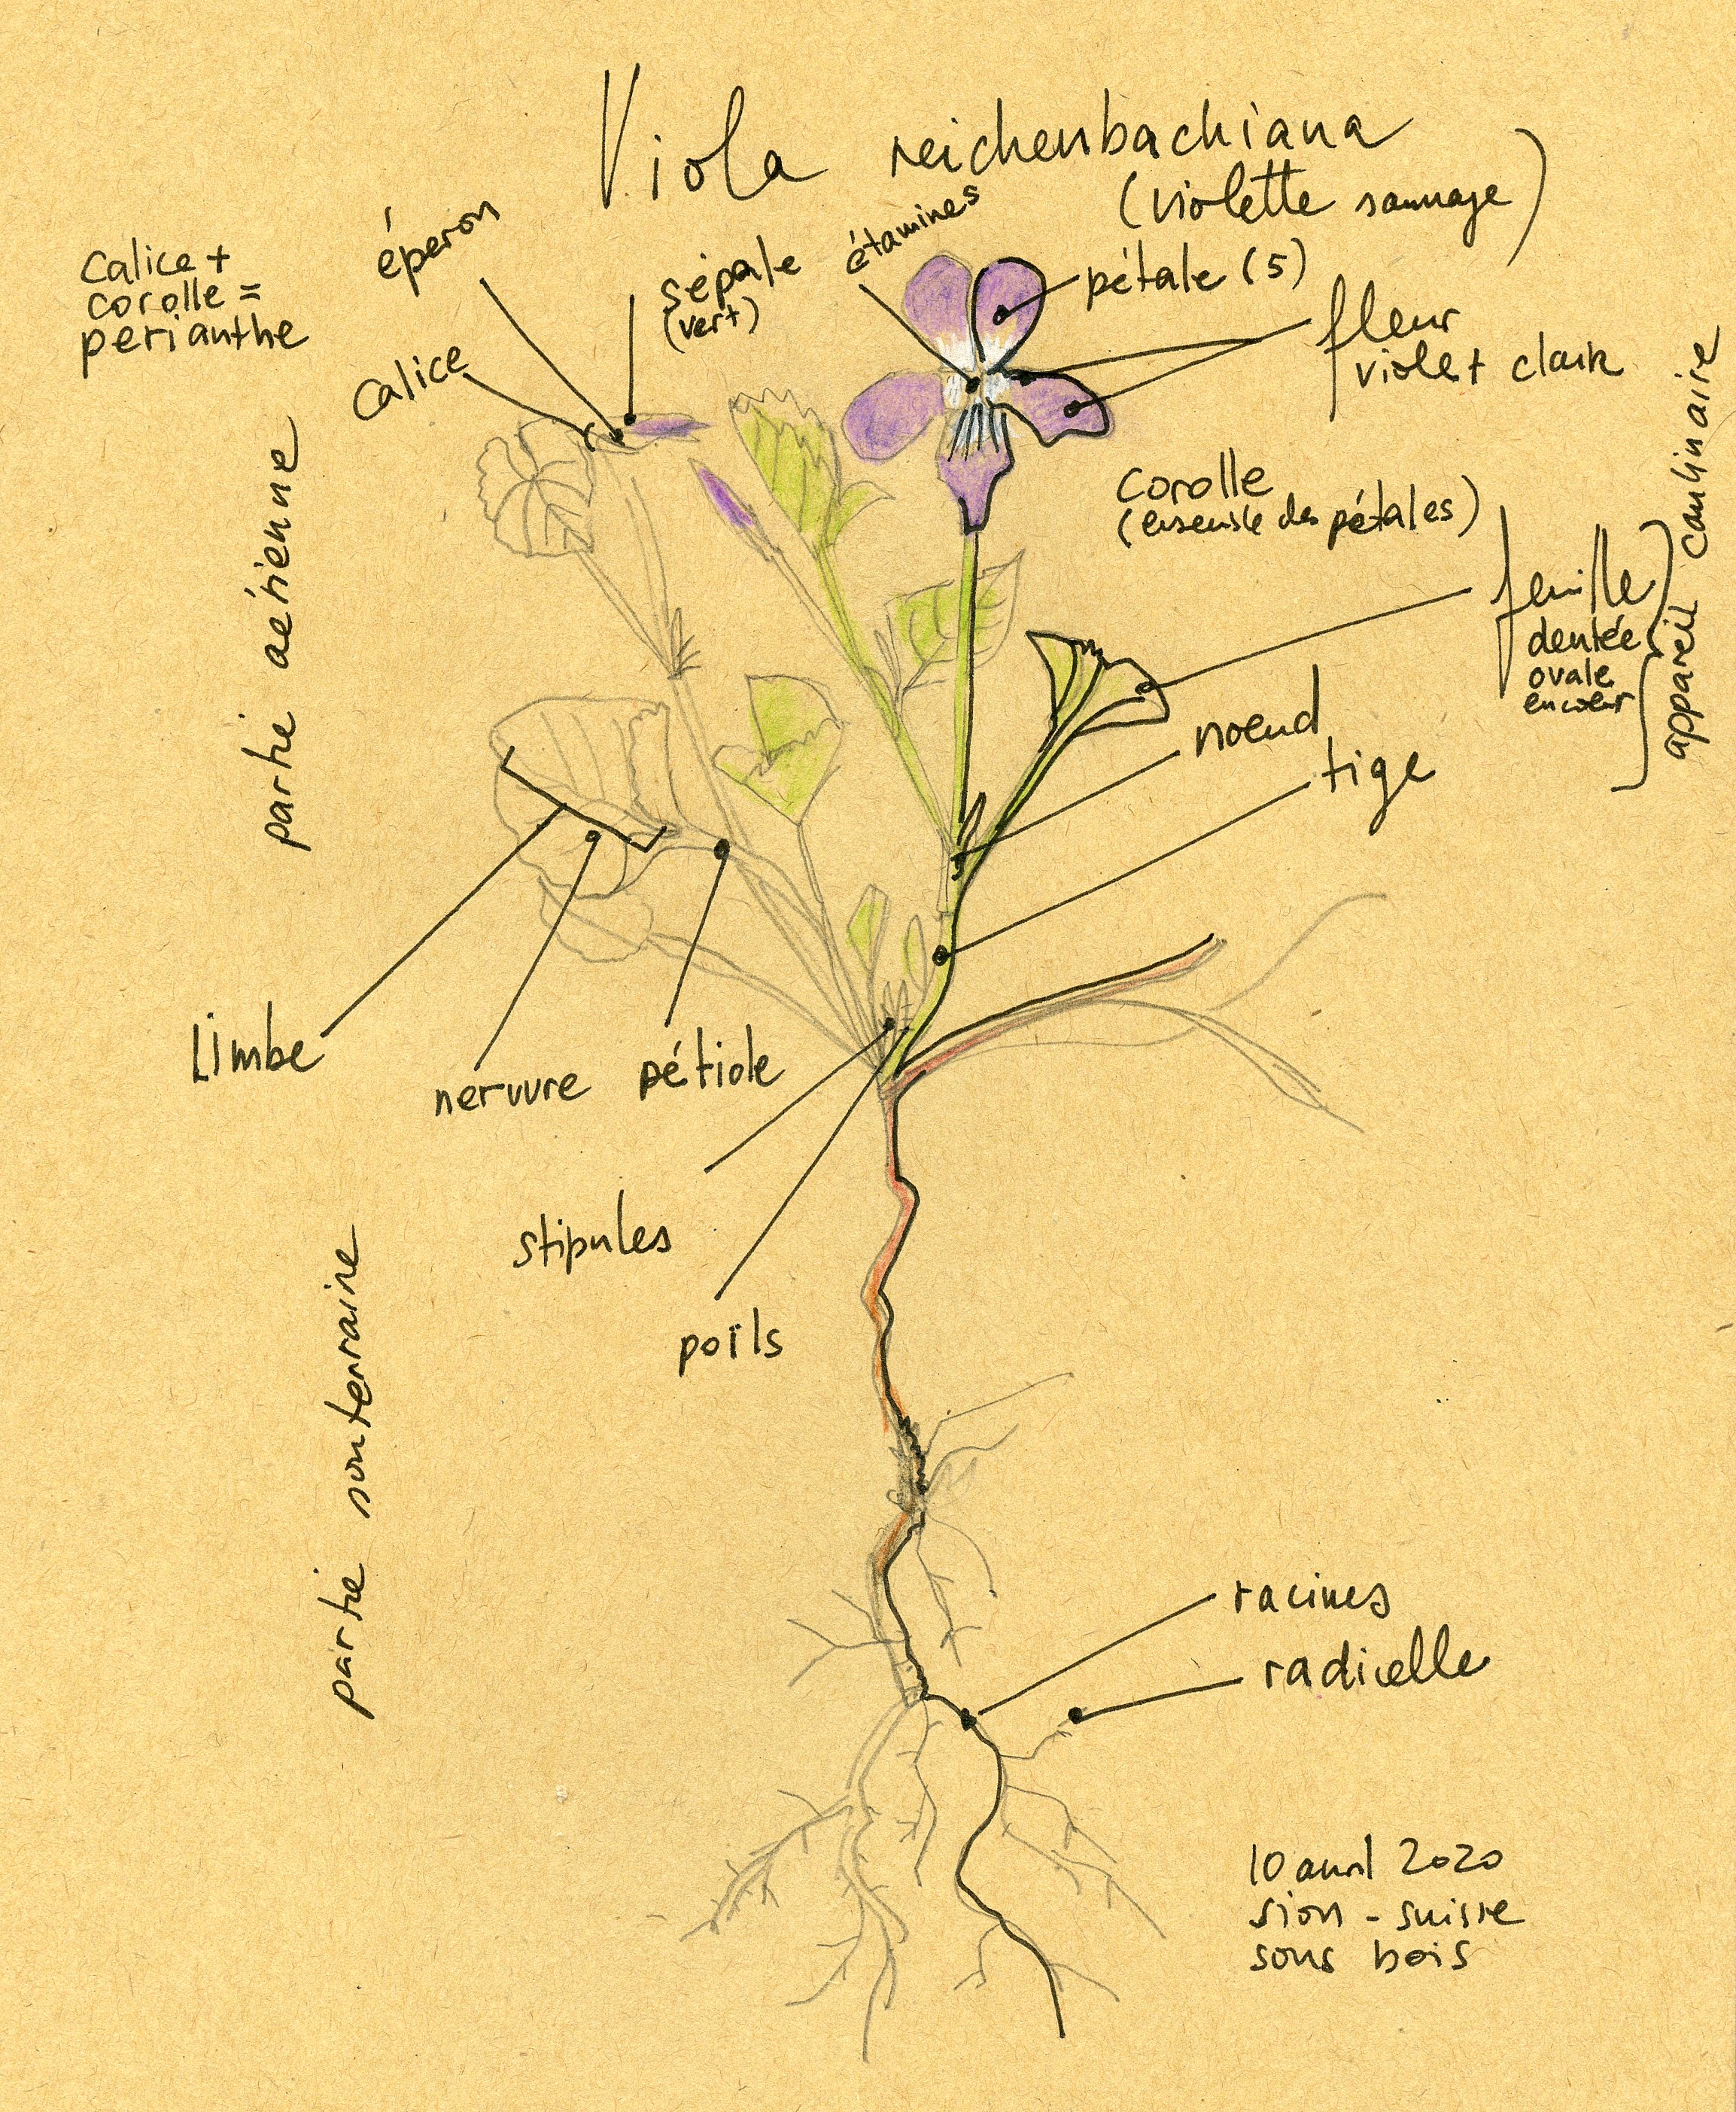 Viola reichenbachiana
(violette sauvage)
éperon
étamines
Calice +
corolle =
perianthe
sépale
(vert)
pétale (5)
fleur
violet clair
calice
partie aérienne
corolle
(ensemble des pétales)
appareil caulinaire
feuille
dentée
ovale
en coeur
noeud
tige
Limbe
nervure
pétiole
stipules
poïls
partie souterraine
racines
radicelle
10 avril 2020
sion - suisse
sous bois